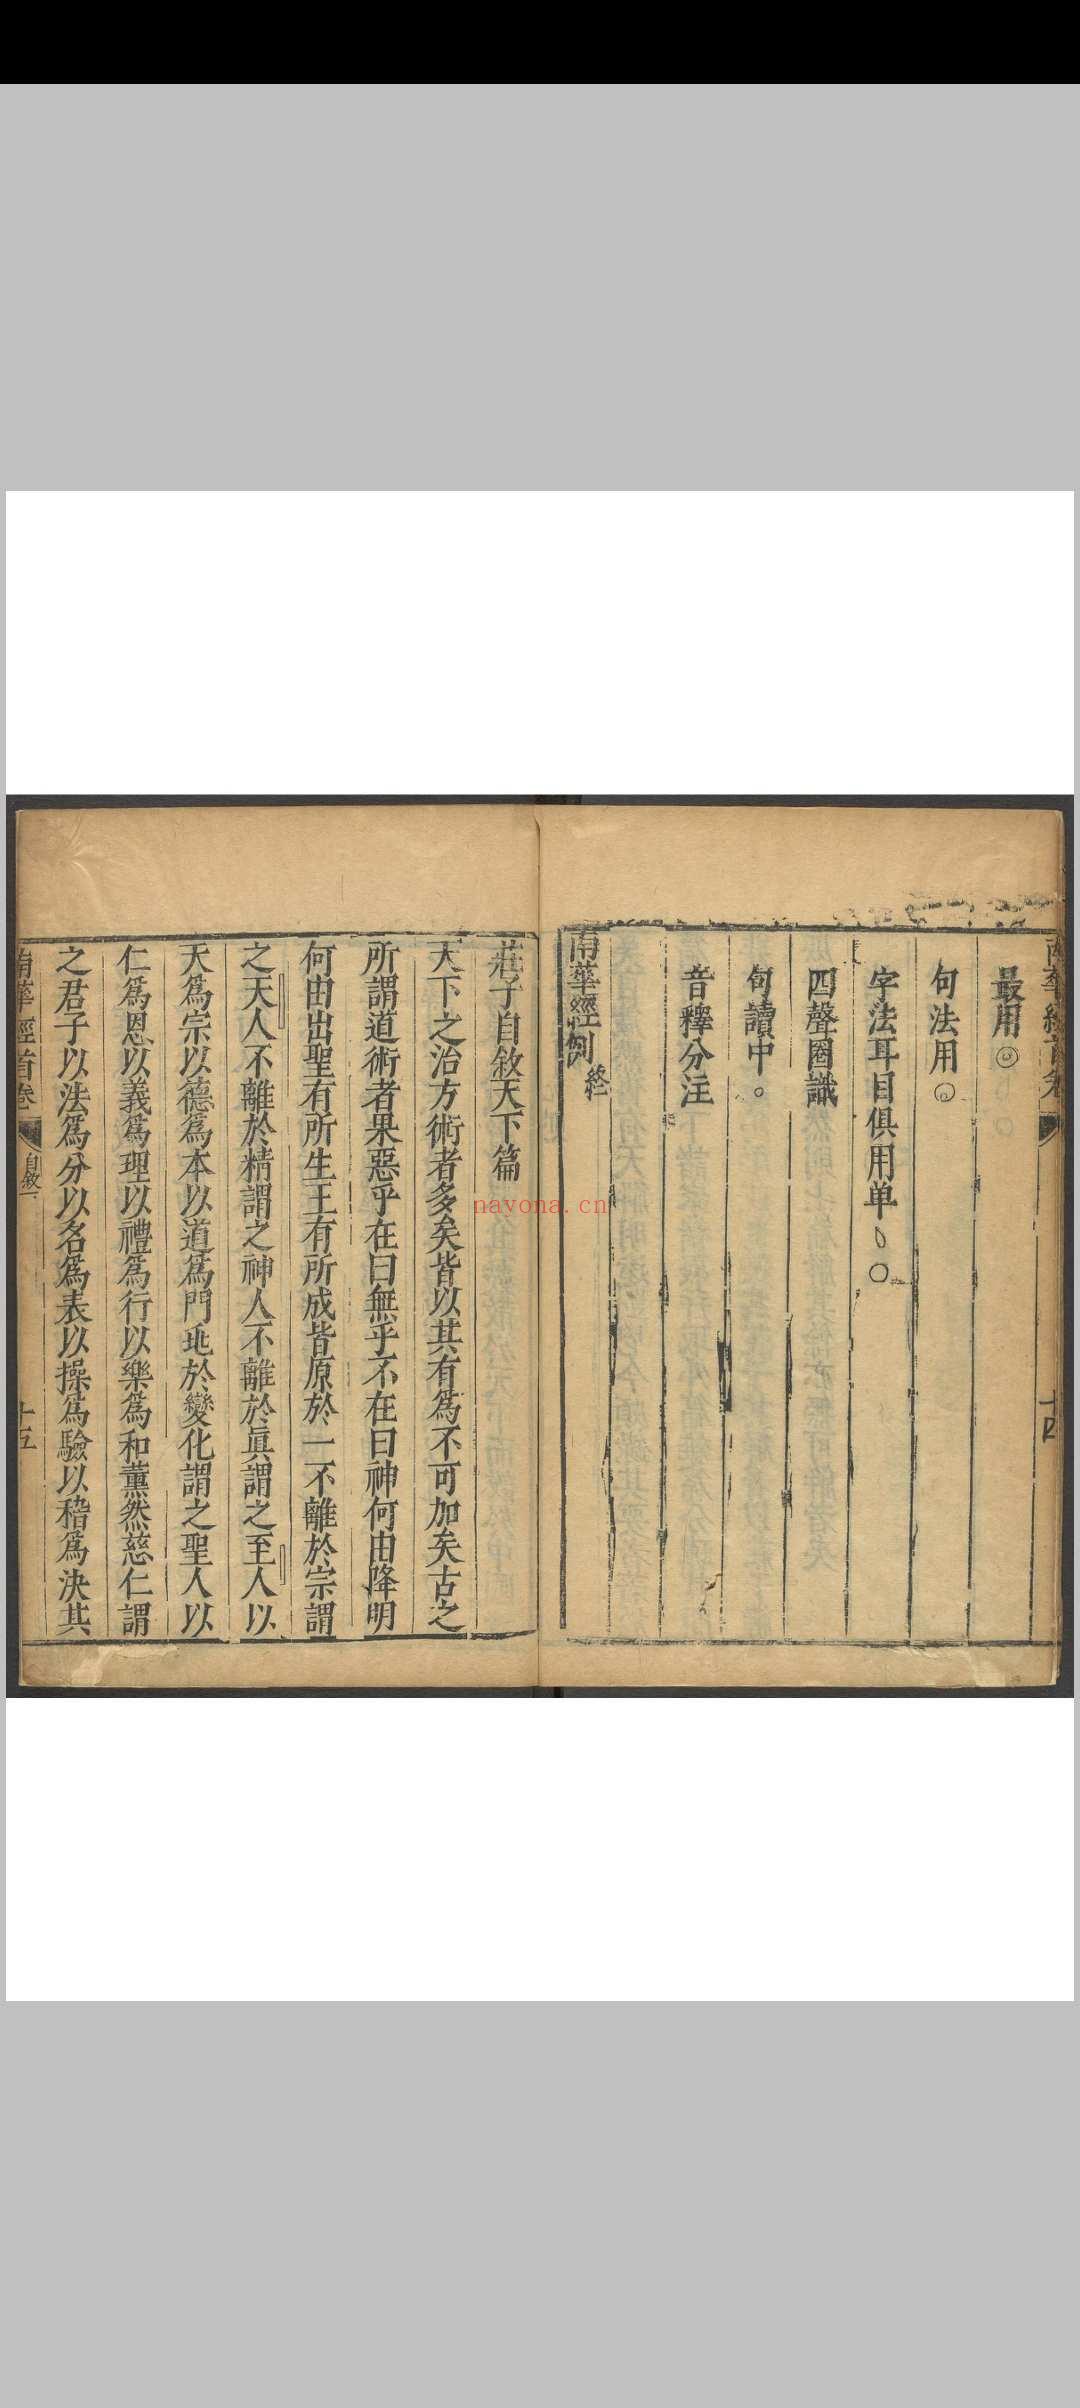 南華經首卷
十四
最用◎
句法用◎
字法耳目俱用单丶○
四聲圈識
句讀中。
音釋分注
南華經例終
莊子自敘天下篇
天下之治方術者多矣皆以其有爲不可加矣古之
所謂道術者果惡乎在曰無乎不在曰神何由降明
何由出聖有所生王有所成皆原於一不離於宗謂
之天人不離於精謂之神人不離於眞謂之至人以
天爲宗以德爲本以道爲門兆於變化謂之聖人以
仁爲恩以義爲理以禮爲行以樂爲和薰然慈仁謂
之君子以法爲分以名爲表以操爲驗以稽爲決其
南華經首卷
自敘一
十五
nayona.cn